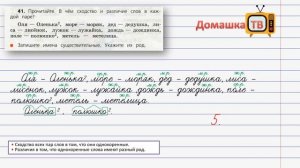 41. Прочитайте. В чём сходство и различие слов в каж-
дой паре?
Оля — Оленька², море — моряк, дед — дедушка, ли-
са — лисёнок, лужок — лужайка, дождь — дождинка,
поле — полюшко², метель — метелица.
Запишите имена существительные. Укажите их род.
Домашка ТВ
Оля – Оленька², море – моряк, дед – дедушка, лиса –
лисёнок, лужок – лужайка, дождь – дождинка, поле –
полюшко², метель – метелица.
Оленька², полюшко².
5.
• Сходство всех пар слов в том, что они однокоренные.
• Различие в том, что однокоренные слова имеют разный род.